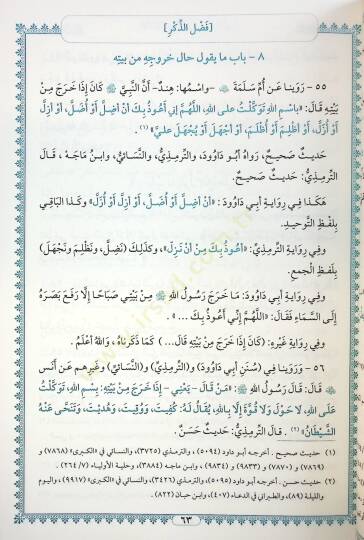 [فَضْل الذِّكْر]
٨ - باب ما يقول حال خروجِهِ من بيتِه
٥٥ - رَوَينا عن أُمِّ سَلَمَةَ - واسْمُها: هِندٌ- أنَّ النَّبيَّ ﷺ كَانَ إذَا خَرَجَ مِنْ
بَيْتِهِ قَالَ: «باسْمِ اللهِ تَوَكَّلْتُ على اللهِ، اللَّهُمَّ إني أَعُوذُ بِكَ أنْ أضِلَّ أَوْ أُضَلَّ، أَوْ أزِلَّ
أَوْ أُزَلَّ، أَوْ أظْلِمَ أَوْ أُظْلَمَ، أَوْ أجْهَلَ أَوْ يُجْهَلَ عليَّ» (١) .
حديثٌ صَحيحٌ، رَوَاهُ أبُو دَاوُودَ، والتِّرمِذِيُّ، والنَّسَائيُّ، وابنُ مَاجَهْ ، قَالَ
التِّرمِذِيُّ: حَديثٌ صَحيحٌ.
هَكَذا في رِوَايةِ أبي دَاوُودَ : «أنْ أضِلَّ أَوْ أُضَلَّ، أَوْ أزِلَّ أَوْ أُزَلَّ» وكَذا البَاقِي
بِلَفْظِ التَّوحِيدِ.
وفِي رِوايةِ التِّرمِذيِّ: «أَعُوذُ بِكَ مِنْ أنْ نَزِلَّ»، وكذَلِكَ (نَضِلَّ، ونَظْلِمَ ونَجْهَلَ)
بِلَفظِ الجمعِ.
وفِي رِوَايةِ أبي دَاوُودَ: مَا خَرَجَ رَسُولُ اللهِ ﷺ مِنْ بَيْتِي صَبَاحًا إلَّا رَفَعَ بَصَرَهُ
إلَى السَّمَاءِ فَقَالَ: «اللَّهُمَّ إنِّي أَعُوذُ بِكَ ... » .
وفي رِوَايةِ غَيْرِهِ: (كَانَ إذَا خَرَجَ مِنْ بَيْتِهِ قَالَ... ) كَمَا ذَكَرنَاهُ، واللهُ أَعْلَمُ .
٥٦ - وَرَوينا في (سُنَنِ أبي دَاوُودَ) و(التِّرمِذِيِّ) و(النَّسائي) وغَيرِهِم عَن أنَسٍ
قَالَ: قَالَ رَسُولُ اللهِ ﷺ: «مَنْ قَالَ - يَعْنِي - إذَا خَرَجَ مِنْ بَيْتِهِ: بِسْمِ اللهِ، تَوَكَّلْتُ
عَلَى اللهِ، لا حَوْلَ وَلَا قُوَّةَ إلَّا بِاللهِ، يُقَالُ لَهُ: كُفِيتَ، وَوُقِيتَ، وَهُدِيتَ، وَتَنَحَّى عَنْهُ
الشَّيْطَانُ» (٢) . قَالَ التِّرمِذِيُّ: حَدِيثٌ حَسَنٌ.
(١) حديث صحيح . أخرجه أبو داود (٥٠٩٤)، والترمذي (٣٧٢٥)، والنسائي في «الكبرى» (٧٨٦٨) و
(٧٨٦٩) و (٧٨٧٠) و (٩٨٣٣) و (٩٨٣٤) وابن ماجه (٣٨٨٤)، وحلية الأولياء (٧/ ٢٦٤)
(٢) حديث حسن . أخرجه أبو داود (٥٠٩٥) والترمذي (٣٤٢٦) والنسائي في «الكبرى» (٩٩١٧)، واليوم
والليلة (٨٩)، والطبراني في الدعاء (٤٠٧)، وابن حبان (٨٢٢)
٦٣